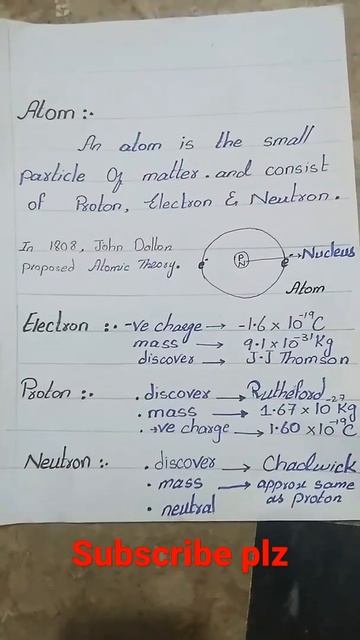 Atom :-
An atom is the small
particle Of matter. and consist
of Proton, Electron & Neutron.
In 1808, John Dalton
proposed Atomic Theory.
P
N
e⁻ e⁻ → Nucleus
Atom
Electron :- -ve charge → -1.6 x 10⁻¹⁹C
mass → 9.1 x 10⁻³¹Kg
discover → J.J Thomson
Proton :- . discover → Rutheford
. mass → 1.67 x 10⁻²⁷ Kg
. +ve charge → 1.60 x10⁻¹⁹C
Neutron :- . discover → Chadwick
. mass → approxt same
as proton
. neutral
Subscribe plz